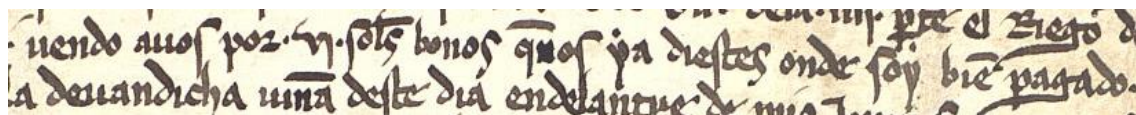 dela .iiij. pte el Riego d
uendo auos por .vj. sols bonos q̄ uos ya diestes onde soy biē pagado.
la deuandicha uinā deste dia endelantre